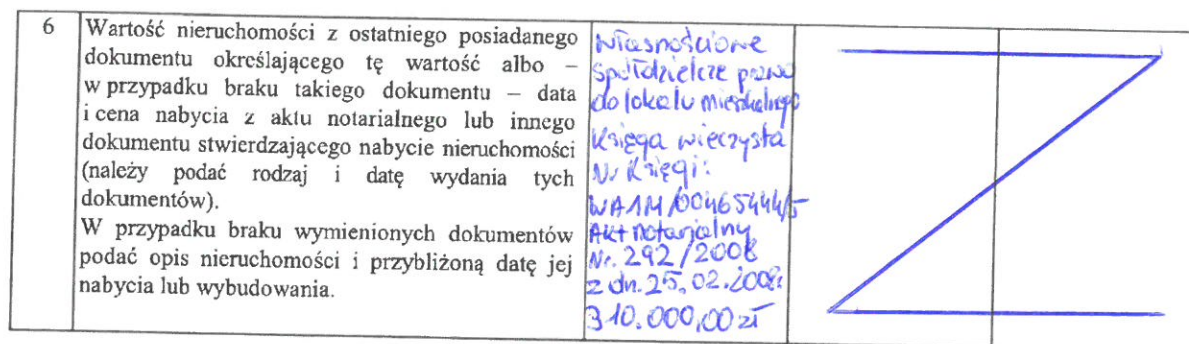 6
Wartość nieruchomości z ostatniego posiadanego
dokumentu określającego tę wartość albo –
w przypadku braku takiego dokumentu – data
i cena nabycia z aktu notarialnego lub innego
dokumentu stwierdzającego nabycie nieruchomości
(należy podać rodzaj i datę wydania tych
dokumentów).
W przypadku braku wymienionych dokumentów
podać opis nieruchomości i przybliżoną datę jej
nabycia lub wybudowania.
Własnościowe
Spółdzielcze prawo
do lokalu mieszkalnego
Księga wieczysta
Nr Księgi:
WA1M/00465444/5
Akt notarialny
Nr. 292/2008
z dn. 25.02.2008r
310.000,00 zł